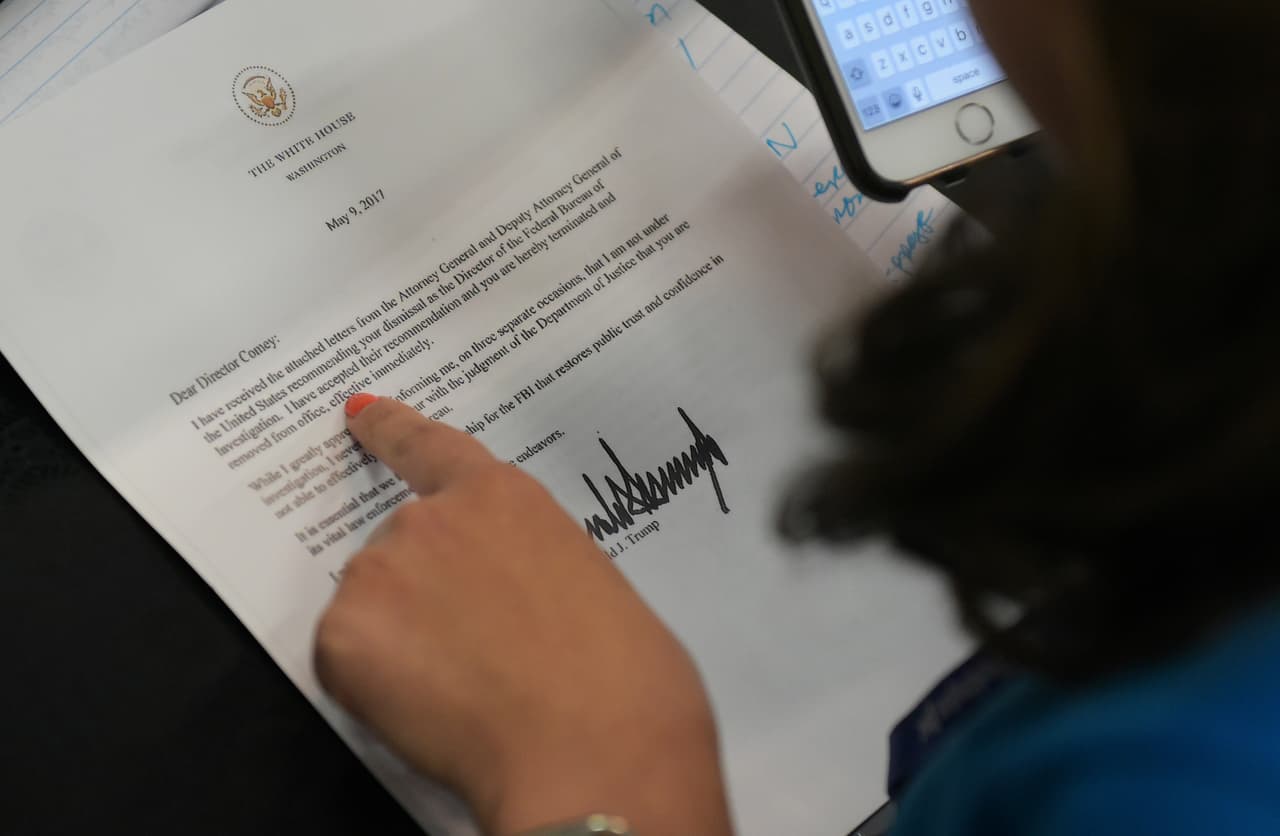 THE WHITE HOUSE
WASHINGTON
May 9, 2017
Dear Director Comey:
I have received the attached letters from the Attorney General and Deputy Attorney General of
the United States recommending your dismissal as the Director of the Federal Bureau of
Investigation. I have accepted their recommendation and you are hereby terminated and
removed from office, effective immediately.
While I greatly informing me, on three separate occasions, that I am not under
investigation, I with the judgment of the Department of Justice that you are
not able to effectively
It is essential that we for the FBI that restores public trust and confidence in
its vital law
endeavors.
J. Trump
a s d f g
z x c v b
123 space
N